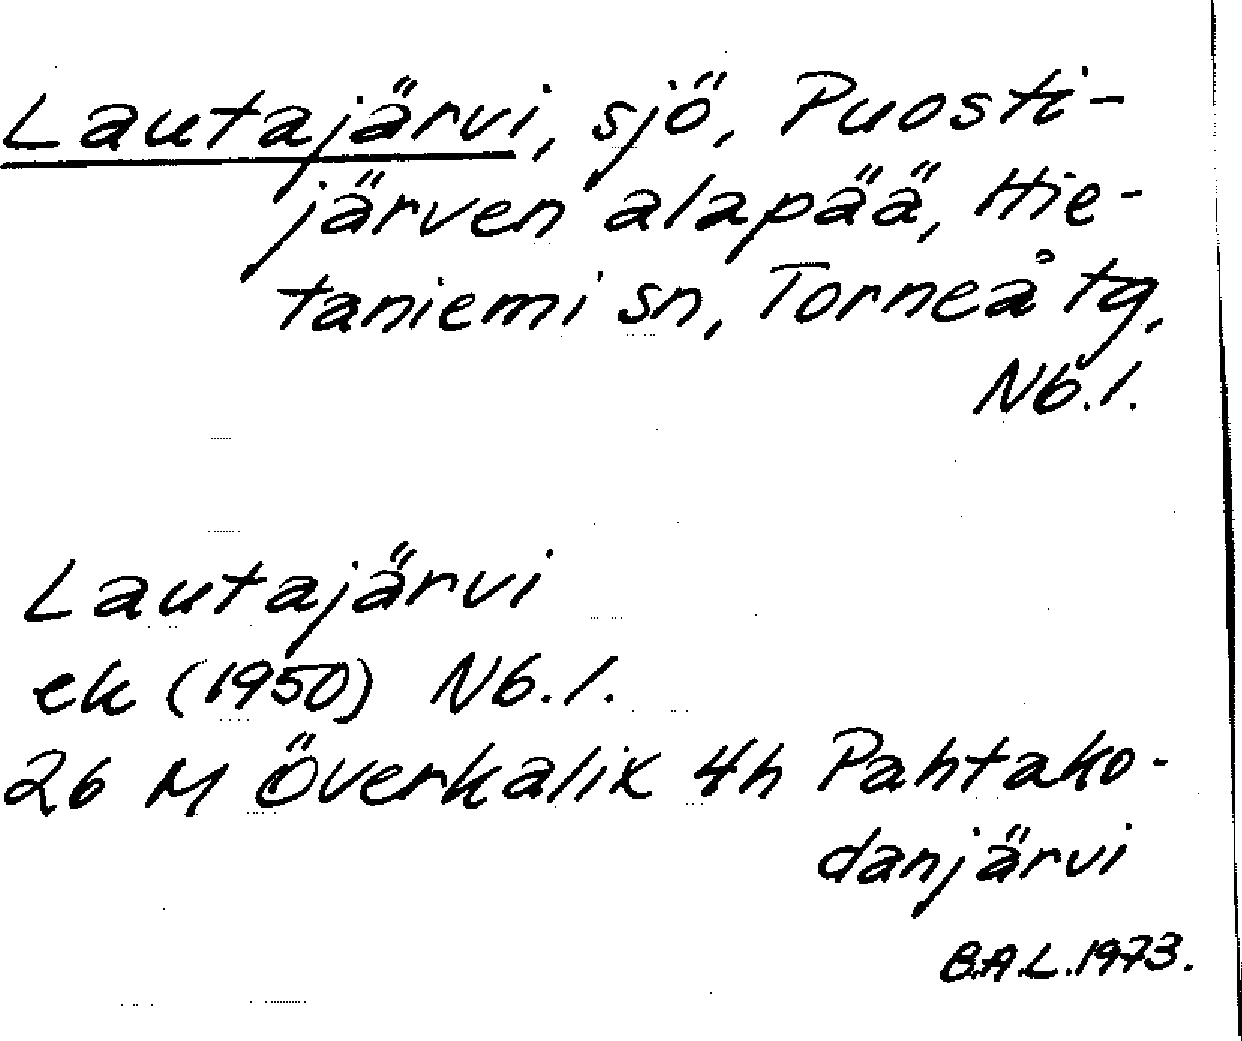 Lautajärvi, sjö, Puosti-
järven alapää, Hie-
taniemi sn, Torneå tg,
Nb.l.
Lautajärvi
ek (1950) Nb.l.
26 M Överkalix 4h Pahtako-
danjärvi
B.A.L.1973.